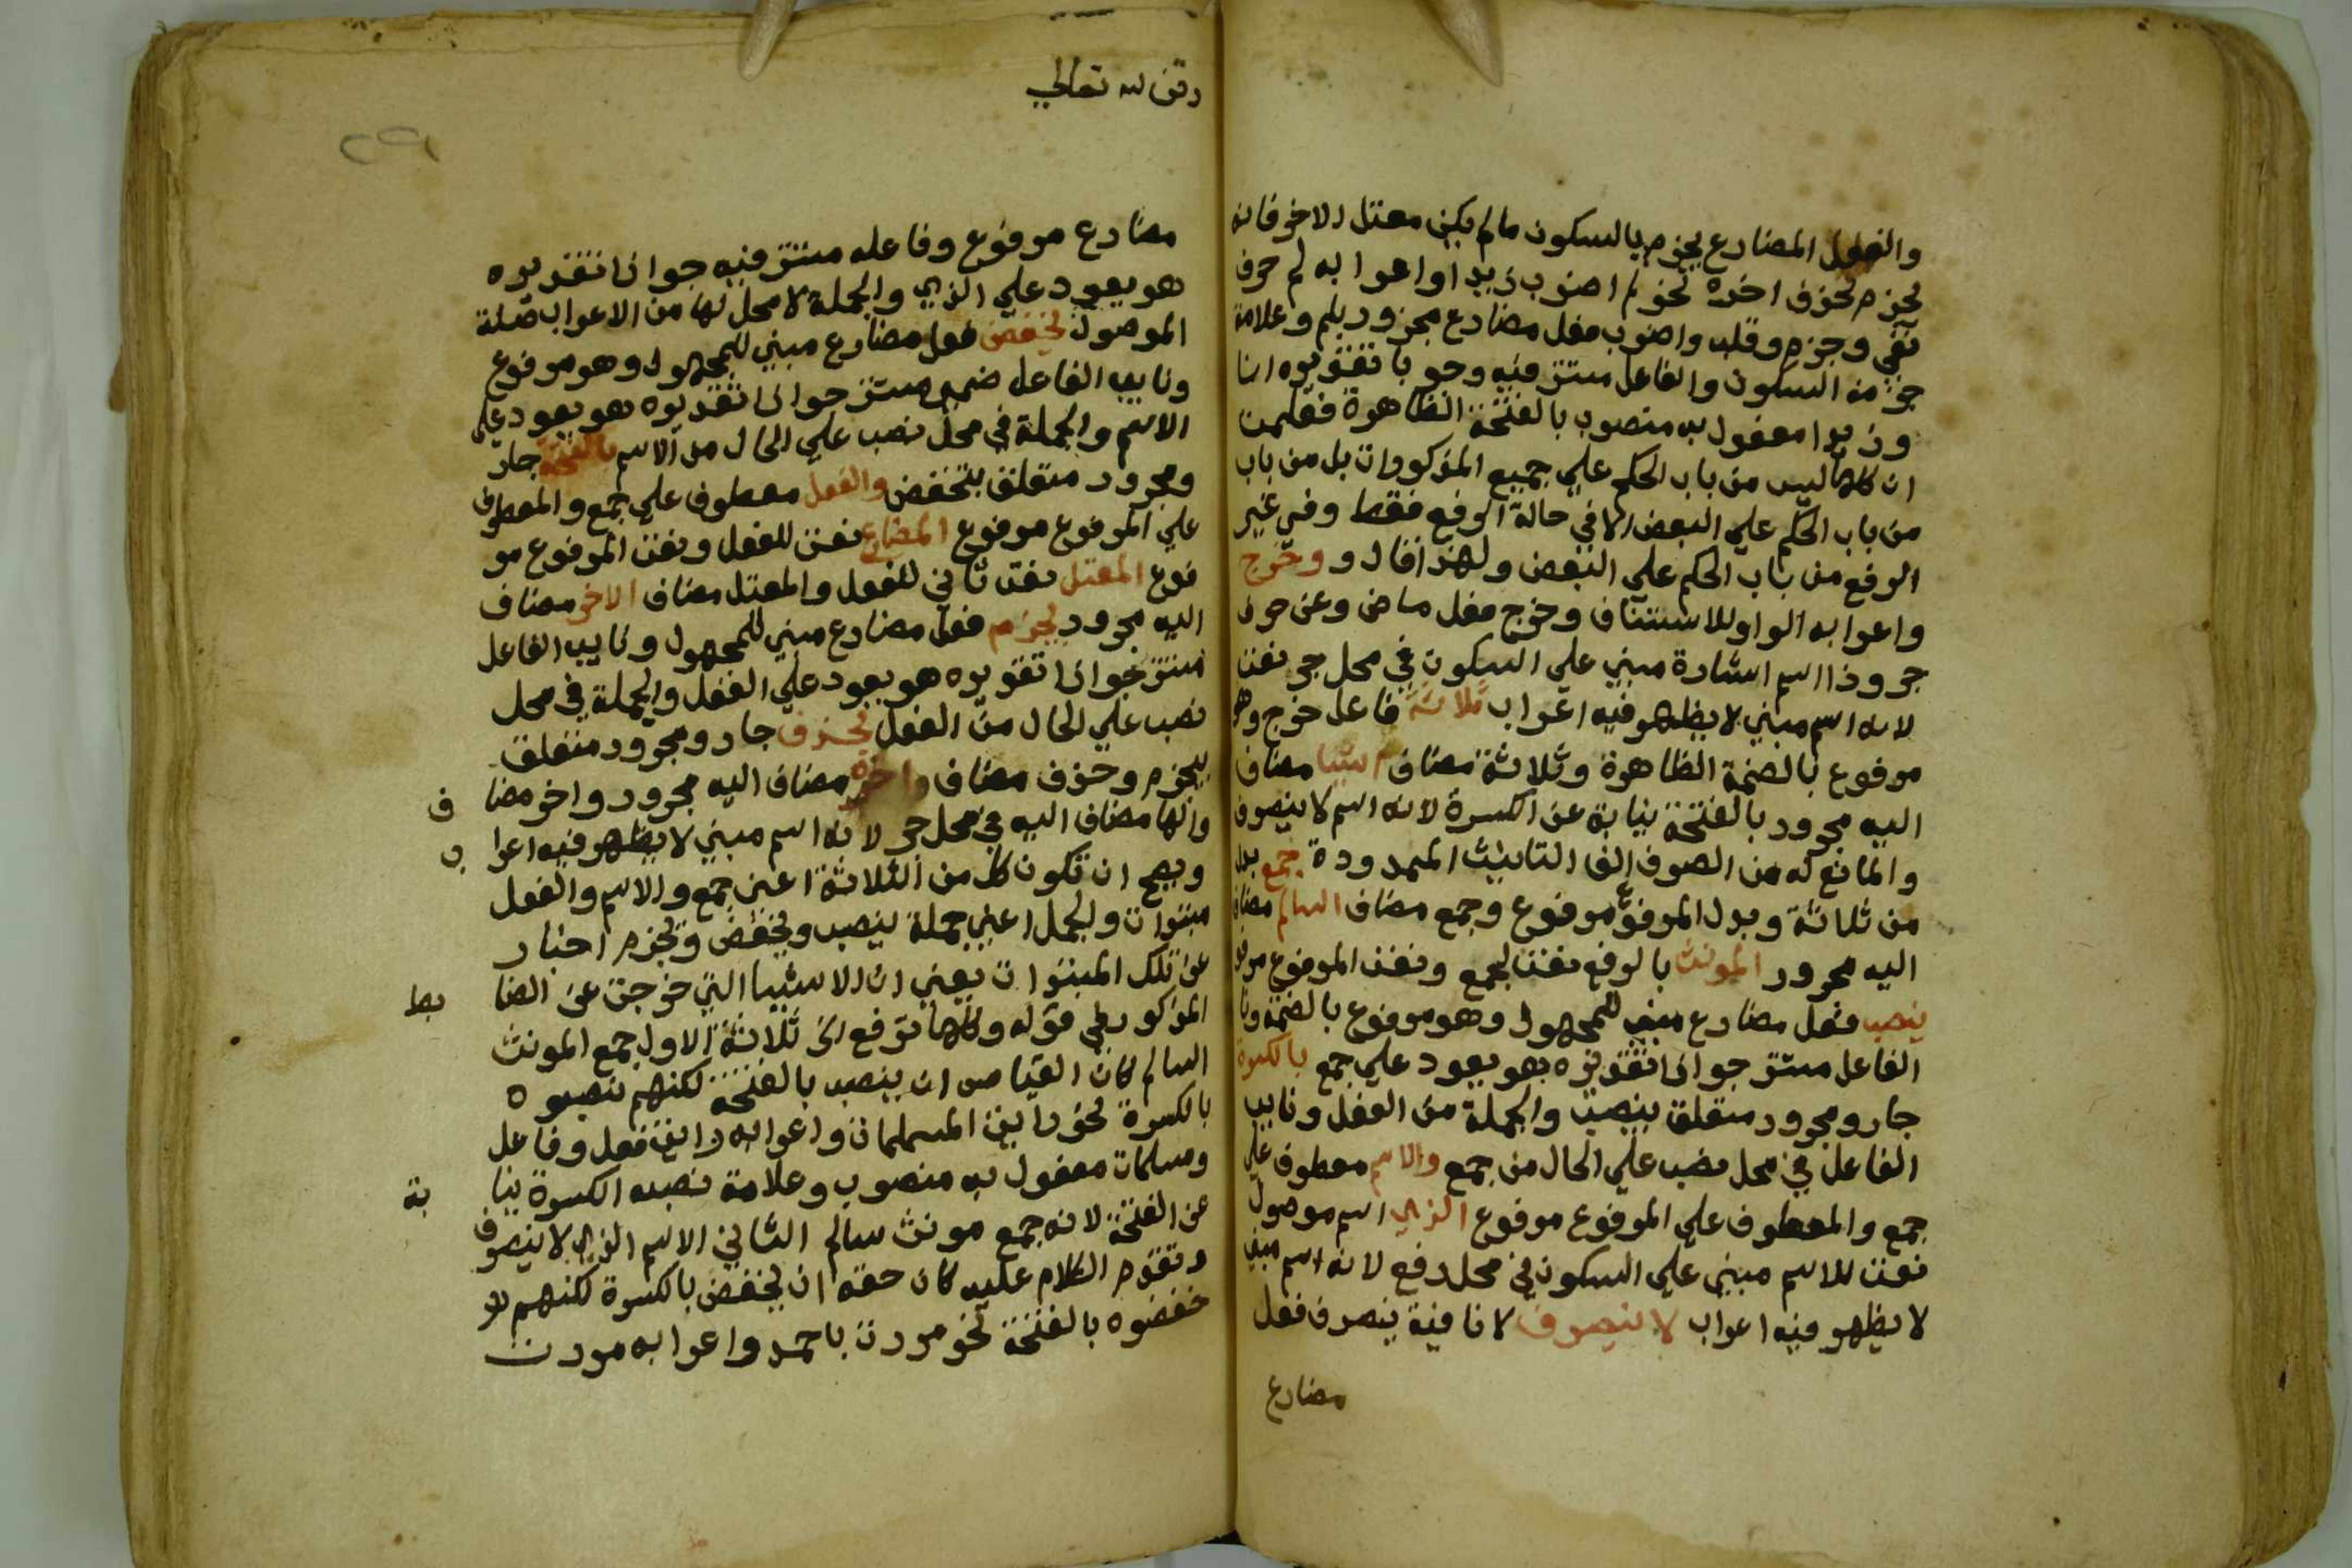 والفعل المضارع يجزم بالسكون ما لم يكن معتل الاخر فانه
يجزم بحذف اخره نحو لم اضرب زيدا واعرابه لم حرف
نفي وجزم وقلب واضرب فعل مضارع مجزور بلم وعلامة
جزمه السكون والفاعل مستتر فيه وجوبا تقديره انا
وزيدا مفعول به منصوب بالفتحة الظاهرة فعلمت
ان كلها ليس من باب الحكم علي جميع المذكورات بل من باب
من باب الحكم علي البعض الا في حالة الرفع فقط وفي غير
الرفع من باب الحكم علي البعض ولهذا قال و وخرج
واعرابه الواو للاستئناف وخرج فعل ماض وعن حرف
جر وذا اسم اشارة مبني علي السكون في محل جر بعن
لانه اسم مبني لا يظهر فيه اعراب ثلاثة فاعل خرج وهو
مرفوع بالضمة الظاهرة وثلاثة مضاف اشيا مضاف
اليه مجرور بالفتحة نيابة عن الكسرة لانه اسم لا ينصرف
والمانع له من الصرف الف التانيث الممدودة جمع بدل
من ثلاثة وبدل المرفوع مرفوع وجمع مضاف السالم مضاف
اليه مجرور المونث بالرفع نعت لجمع ونعت المرفوع مرفو
ينصب فعل مضارع مبني للمجهول وهو مرفوع بالضمة ونا
الفاعل مستتر جوازا تقديره هو يعود علي جمع بالكسرة
جار ومجرور متعلق بينصب والجملة من الفعل ونايب
الفاعل في محل نصب علي الحال من جمع والاسم معطوف علي
جمع والمعطوف علي المرفوع مرفوع الذي اسم موصول
نعت للاسم مبني علي السكون في محل رفع لانه اسم مبني
لا يظهر فيه اعراب لا ينصرف لا نافية ينصرف فعل
مضارع
وقف لله تعالي
٢٩١
مضارع مرفوع وفاعله مستتر فيه جوازا تقديره
هو يعود علي الذي والجملة لا محل لها من الاعراب صلة
الموصول يخفض فعل مضارع مبني للمجهول وهو مرفوع
ونايب الفاعل ضمير مستتر جوازا تقديره هو يعود علي
الاسم والجملة في محل نصب علي الحال من الاسم بالفتحة جار
ومجرور متعلق بيخفض والفعل معطوف علي جمع والمعطوف
علي المرفوع مرفوع المضارع نعت للفعل ونعت المرفوع مر
فوع المعتل نعت ثاني للفعل والمعتل مضاف الاخر مضاف
اليه مجرور يجزم فعل مضارع مبني للمجهول ونايب الفاعل
مستتر جوازا تقديره هو يعود علي الفعل والجملة في محل
نصب علي الحال من الفعل بحذف جار ومجرور متعلق
بيجزم وحذف مضاف واخره مضاف اليه مجرور واخر مضا ف
والها مضاف اليه في محل جر لانه اسم مبني لا يظهر فيه اعرا ب
ويصح ان تكون كل من الثلاثة اعني جمع والاسم والفعل
مبتدات والجمل اعني جملة ينصب ويخفض ويجزم اخبار
عن تلك المبتدات يعني ان الاشيا التي خرجت عن الضا بط
المذكور في قوله وكلها ترفع الخ ثلاثة الاول جمع المونث
السالم كان القياس ان ينصب بالفتحة لكنهم نصبوه
بالكسرة نحو رايت المسلمات واعرابه رايت فعل وفاعل
ومسلمات مفعول به منصوب وعلامة نصبه الكسرة نيا بة
عن الفتحة لانه جمع مونث سالم الثاني الاسم الذي لا ينصرف
وتقدم الكلام عليه كان حقه ان يخفض بالكسرة لكنهم
خفضوه بالفتحة نحو مررت باحمد واعرابه مررت